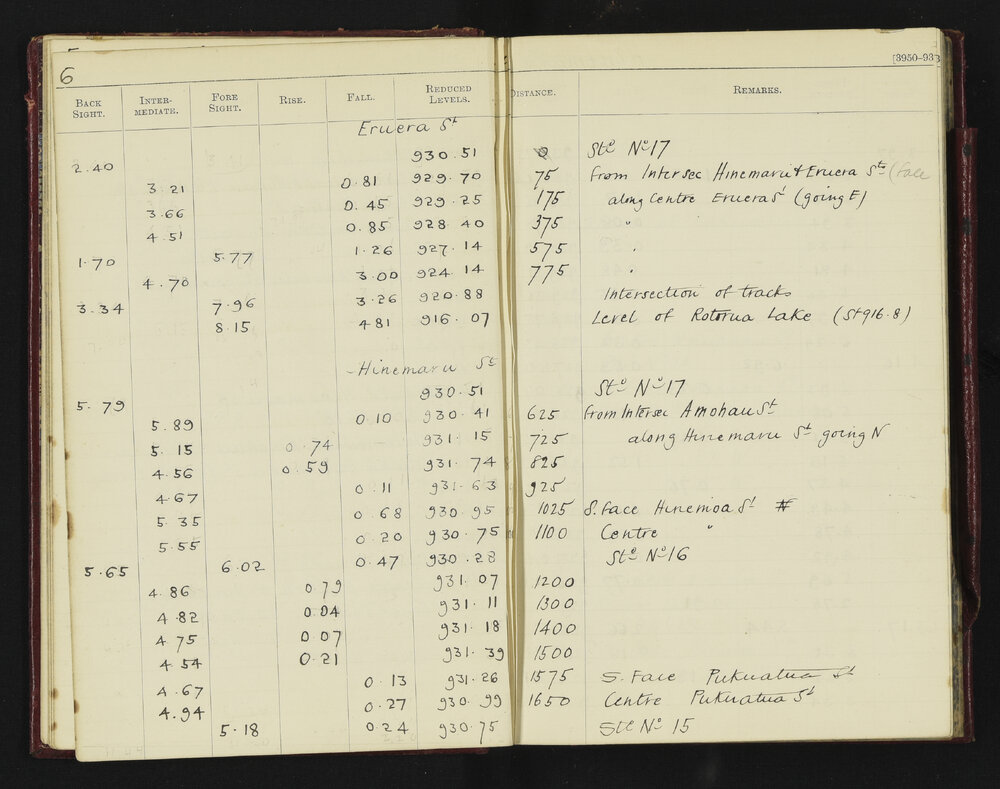 6
[3950-93
BACK SIGHT. INTER-MEDIATE. FORE SIGHT. RISE. FALL. REDUCED LEVELS. DISTANCE. REMARKS.
Eruera St
2.40 930.51 0 Stn No 17
3.21 0.81 929.70 75 from Intersec Hinemaru & Eruera Sts (face
3.66 0.45 929.25 175 along Centre Eruera St (going E)
4.51 0.85 928.40 375 "
1.70 5.77 1.26 927.14 575 "
4.70 3.00 924.14 775 "
3.34 7.96 3.26 920.88 Intersection of tracks
8.15 4.81 916.07 Level of Rotorua Lake (St 916.8)
Hinemaru St
5.79 930.51 Stn No 17
5.89 0.10 930.41 625 from Intersec Amohau St
5.15 0.74 931.15 725 along Hinemaru St going N
4.56 0.59 931.74 825
4.67 0.11 931.63 925
5.35 0.68 930.95 1025 S. Face Hinemoa St #
5.55 0.20 930.75 1100 Centre "
5.65 6.02 0.47 930.28 Stn No 16
4.86 0.79 931.07 1200
4.82 0.04 931.11 1300
4.75 0.07 931.18 1400
4.54 0.21 931.39 1500
4.67 0.13 931.26 1575 S. Face Pukuatua St
4.94 0.27 930.99 1650 Centre Pukuatua St
5.18 0.24 930.75 Stn No 15